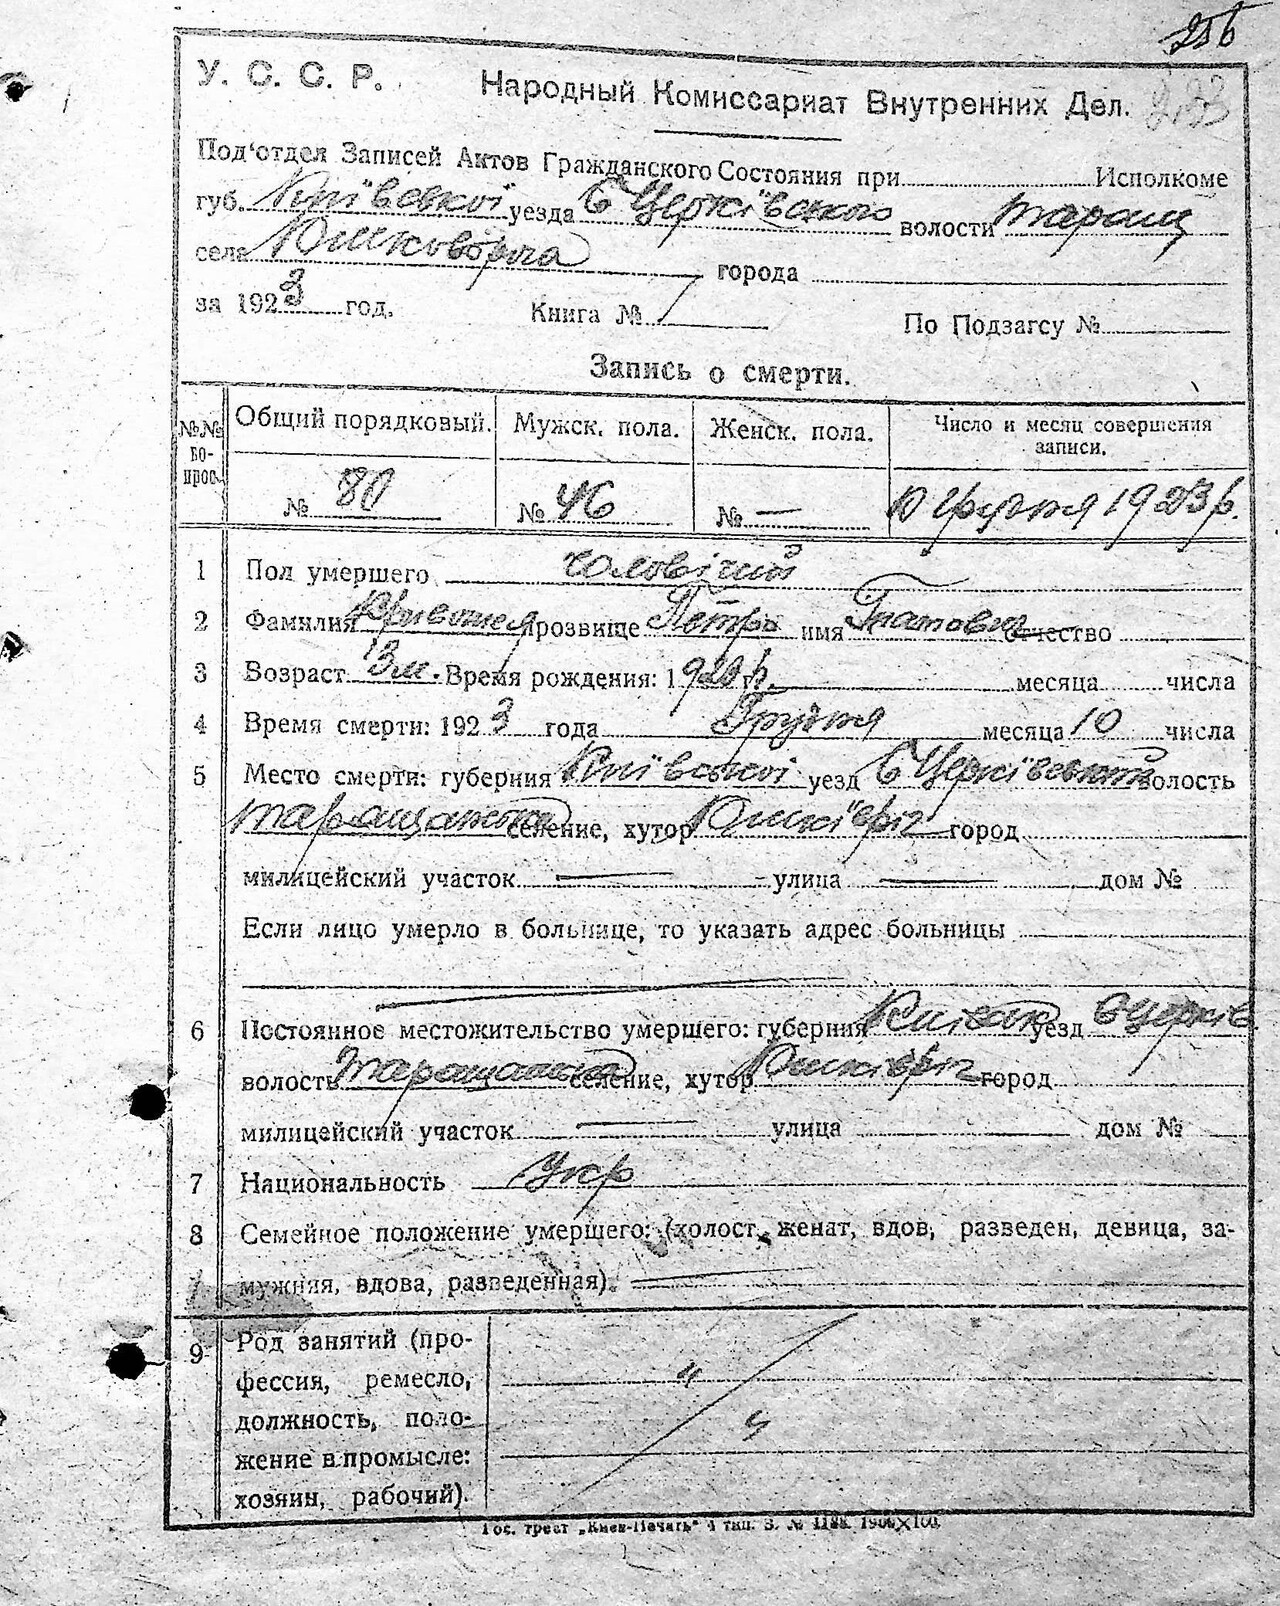 256
293
У. С. С. Р. Народный Комиссариат Внутренних Дел.
Под'отдел Записей Актов Гражданского Состояния при Исполкоме
губ. Київської уезда Б Церківського волости Таращ
села города
за 1923 год. Книга № По Подзагсу №
Запись о смерти.
№№ во-прос. Общий порядковый. Мужск. пола. Женск. пола. Число и месяц совершения записи.
№ 80 № 46 № — 10 Грудня 1923 р.
1 Пол умершего чоловічий
2 Фамилия прозвище Петро имя отчество
3 Возраст 3 м. Время рождения: 1923 г. р. месяца числа
4 Время смерти: 1923 года Грудня месяца 10 числа
5 Место смерти: губерния Київської уезд Б Церківський волость
Таращанська селение, хутор Юшків ріг город
милицейский участок — улица — дом №
Если лицо умерло в больнице, то указать адрес больницы
6 Постоянное местожительство умершего: губерния уезд Б Церків
волость Таращанська селение, хутор Юшків ріг город
милицейский участок — улица дом №
7 Национальность Укр
8 Семейное положение умершего: (холост, женат, вдов, разведен, девица, за-
мужняя, вдова, разведенная). —
9 Род занятий (про-
фессия, ремесло, "
должность, поло- "
жение в промысле:
хозяин, рабочий).
Гос. трест „Киев-Печать“ 4 тип. З. №